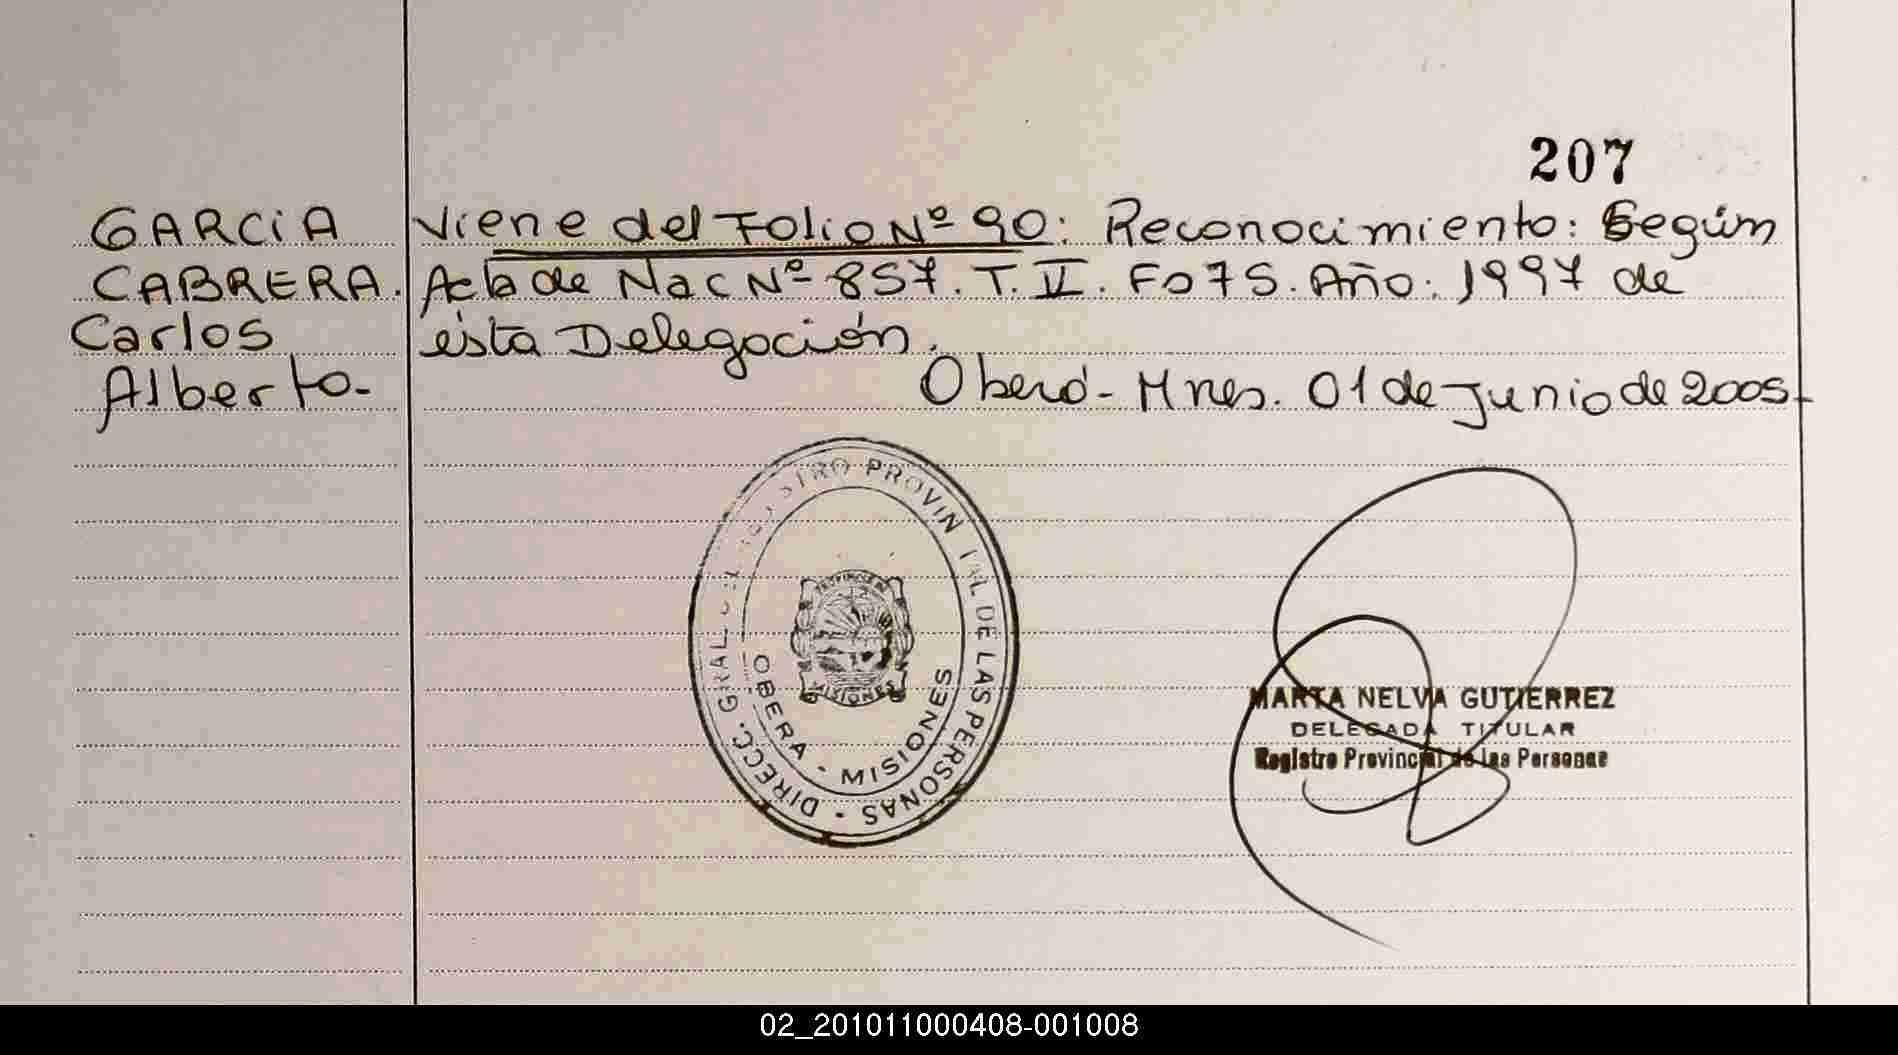 207
GARCiA
CABRERA.
Carlos
Alberto.-
Viene del Folio Nº 90: Reconocimiento: Según
Acta de Nac Nº 857. T. II. Fo 75. Año: 1997 de
ésta Delegación.
Oberá - Mnes. 01 de Junio de 2005.-
DIRECC. GRAL. DEL REGISTRO PROVINCIAL DE LAS PERSONAS
PROVINCIA DE
MISIONES
OBERA - MISIONES
MARTA NELVA GUTIERREZ
DELEGADA TITULAR
Registro Provincial de las Personas
02_201011000408-001008